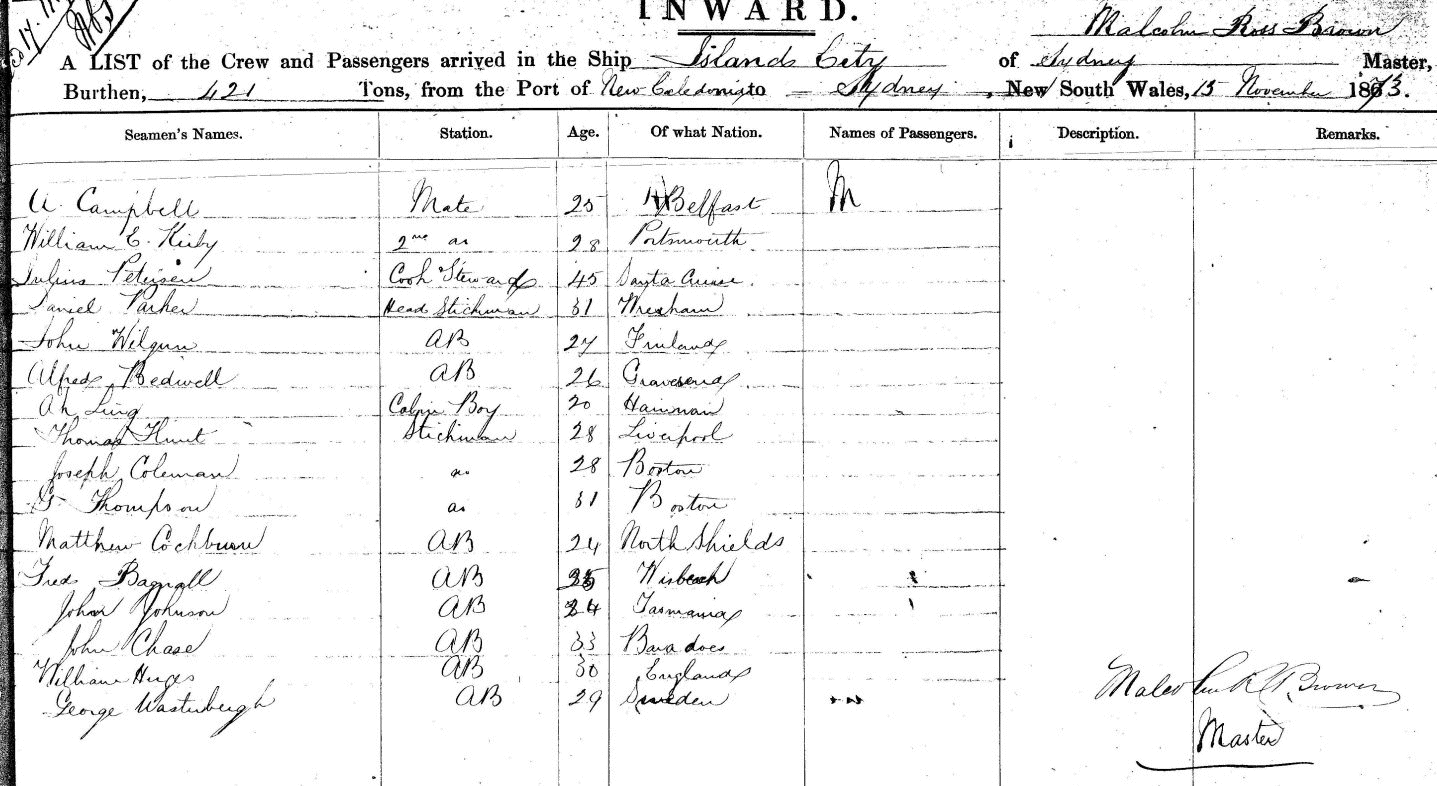 INWARD.
Malcolm Ross Brown
A LIST of the Crew and Passengers arrived in the Ship Island City of Sydney Master,
Burthen, 421 Tons, from the Port of New Caledonia to Sydney, New South Wales, 15 November 1873.
Seamen's Names. Station. Age. Of what Nation. Names of Passengers. Description. Remarks.
A. Campbell Mate 25 Belfast
William E. Kirby 2nd do 28 Portsmouth
Julius Petersen Cook Steward 45 Santa
Daniel Parker Head Stickman 31 Wrexham
John Wilgun AB 27 Finland
Alfred Bedwell AB 26 Gravesend
Ah Ling Cabin Boy 20 Hainnan
Thomas Hunt Stickman 28 Liverpool
Joseph Coleman do 28 Boston
G Thompson do 31 Boston
Matthew Cochburn AB 24 North Shields
Fred Bagnall AB Wisbech
John Johnson AB 24 Tasmania
John Chase AB 33 Bara does
William AB 30 England
George Wasterbergh AB 29 Sweden
Malcolm R Brown
Master